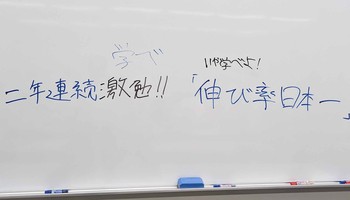 学べ
いや学べよ!
二年連続激勉!!
「伸び率日本一」